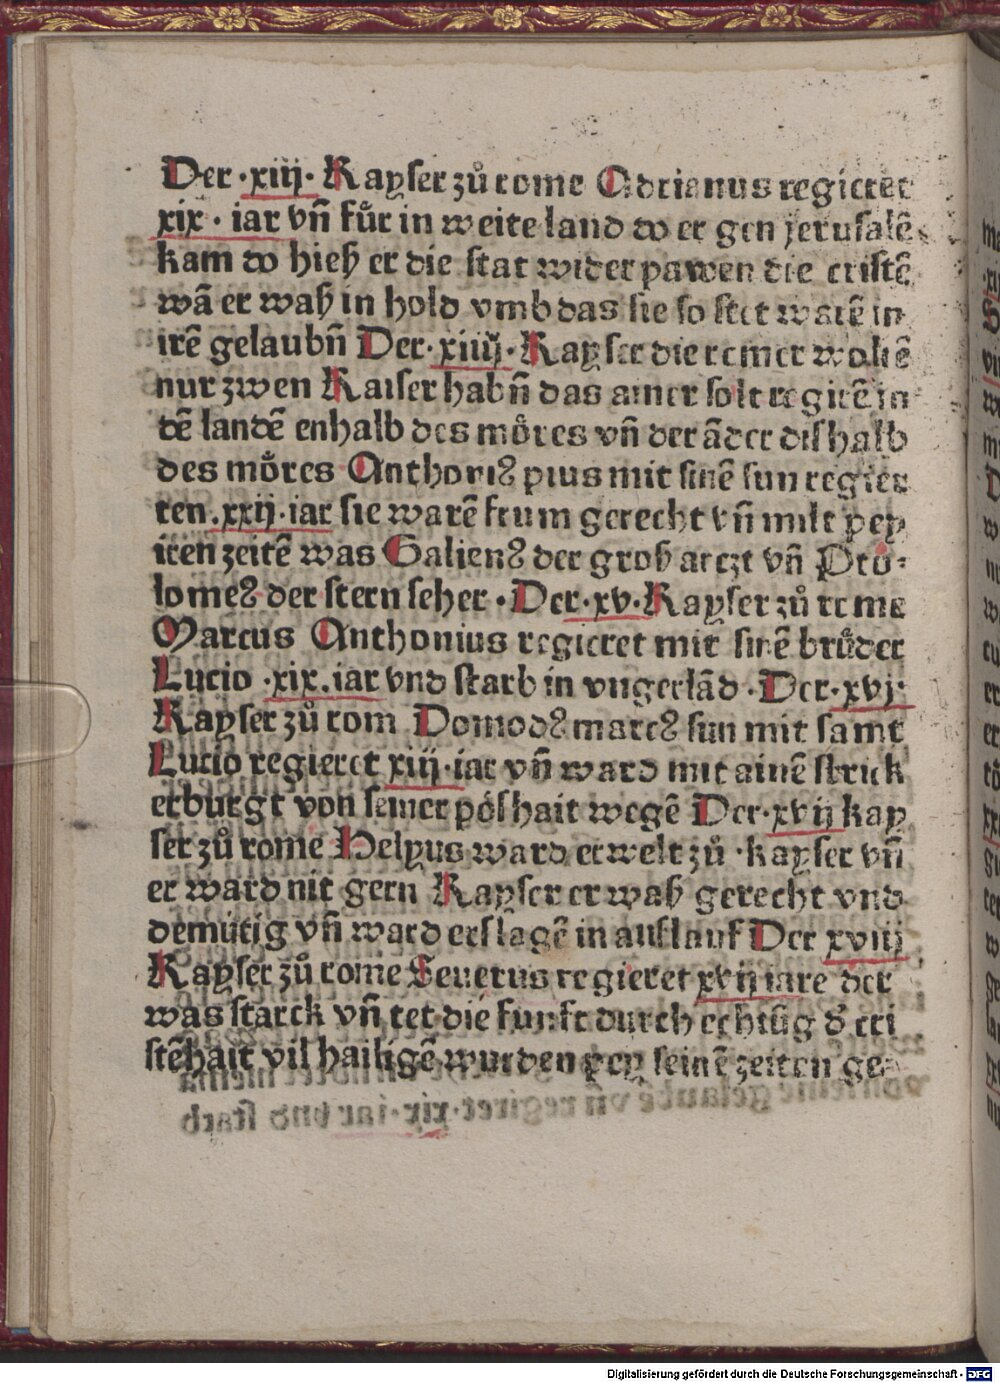 Der ·xiij· Kayser zů rome Adrianus regieret
xix · iar vñ fůr in weite land do er gen jerusalē
kam do hieß er die stat wider pawen die cristē
wā er waß in hold vmb das sie so stet warē in
irē gelaubñ Der·xiiij· Kayser die remer woltē
nur zwen Kaiser habñ das ainer solt regirē in
dē landē enhalb des mo̊res vñ der āder dishalb
des mo̊res Anthoniꝰ pius mit sinē sun regier
ten.xxij·iar sie warē frum gerecht vñ milt pey
iren zeitē was Galienꝰ der groß artzt vñ Pto-
lomeꝰ der stern seher · Der·xv·Kayser zů reme
Marcus Anthonius regieret mit sinē brůder
Lucio ·xix.iar vnd starb in vngerlād · Der·xvj·
Kayser zů rom Domodꝰ marcꝰ sun mit samt
Lucio regieret xiij·iar vñ ward mit ainē strick
erburgt von seiner pöshait wegē Der·xvij kay
ser zů rome Helyus ward erwelt zů ·kayser vñ
er ward nit gern Kayser er waß gerecht vnd
demütig vñ ward erslagē in auflauf Der xviij
Kayser zů rome Seuerus regieret xvij iare der
was starck vñ tet die funft durch echtūg d̄ cri
stēhait vil hailigē wurden pey seinē zeiten ge-
Digitalisierung gefördert durch die Deutsche Forschungsgemeinschaft - DFG